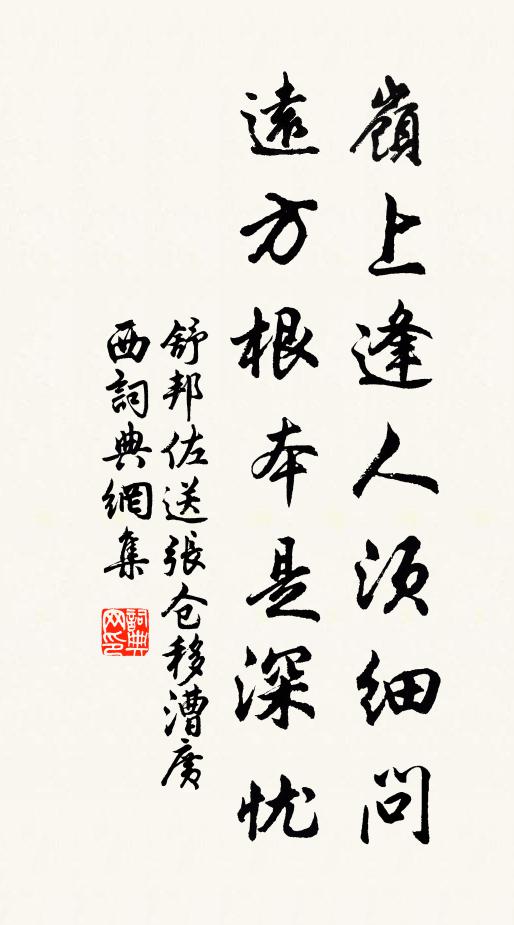 嶺上逢人須細問
遠方根本是深忧
舒邦佐送張仓移漕廣
西詞典網集
詞典
网印